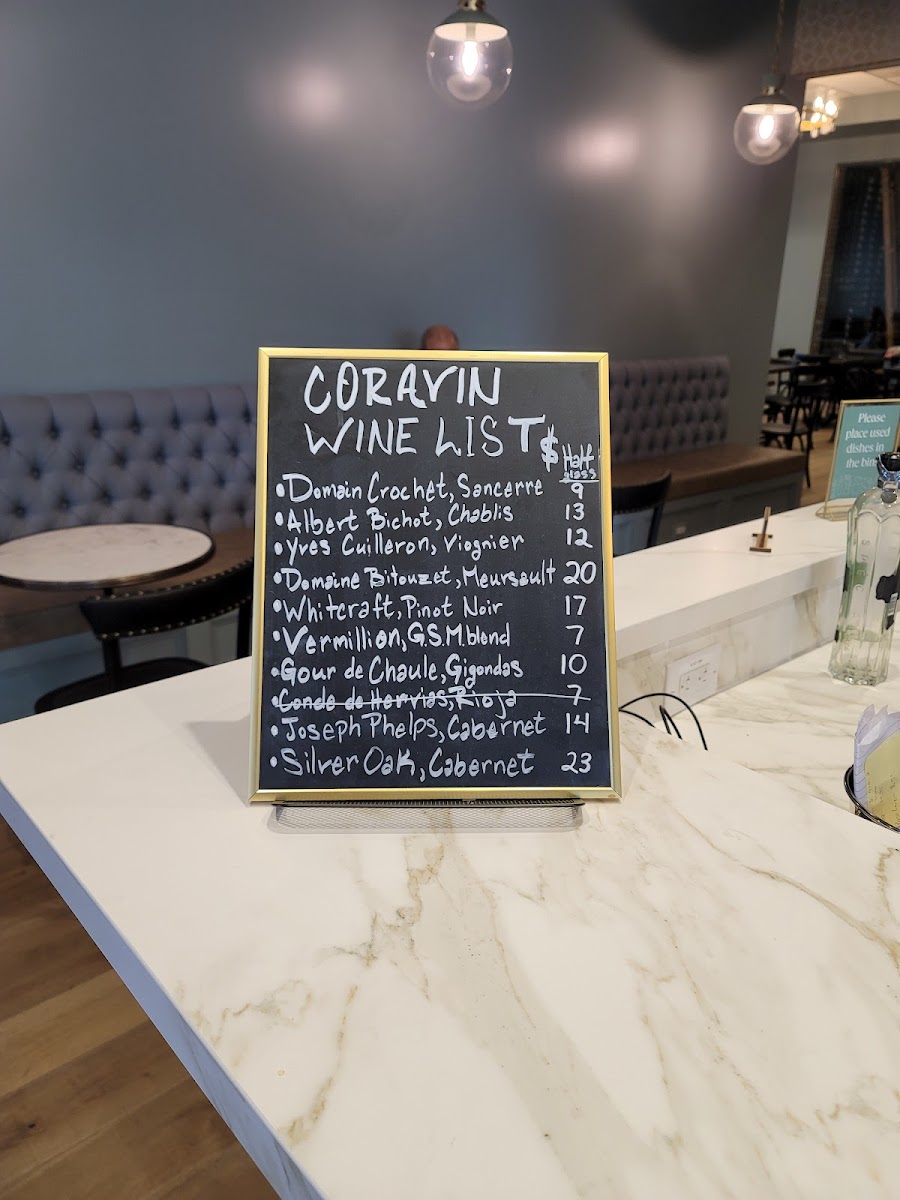 CORAVIN
WINE LIST $ Half glass
• Domain Crochet, Sancerre 9
• Albert Bichot, Chablis 13
• Yves Cuilleron, Viognier 12
• Domaine Bitouzet, Meursault 20
• Whitcraft, Pinot Noir 17
• Vermillion, G.S.M. blend 7
• Gour de Chaule, Gigondas 10
• Conde de Hervias, Rioja 7
• Joseph Phelps, Cabernet 14
• Silver Oak, Cabernet 23
Please
place used
dishes in
the bin